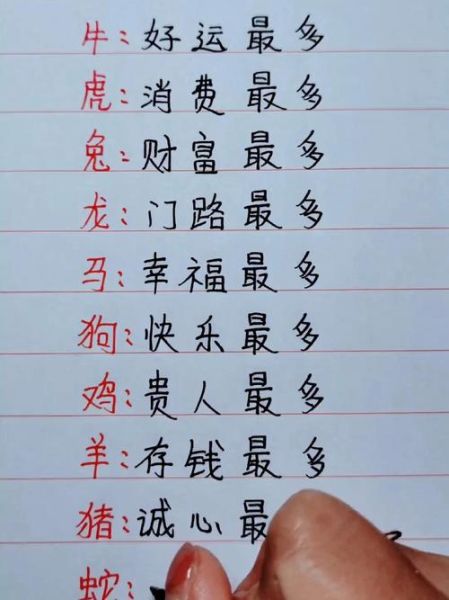 牛：好运最多
虎：消费最多
兔：财富最多
龙：门路最多
马：幸福最多
狗：快乐最多
鸡：贵人最多
羊：存钱最多
猪：诚心最
蛇：